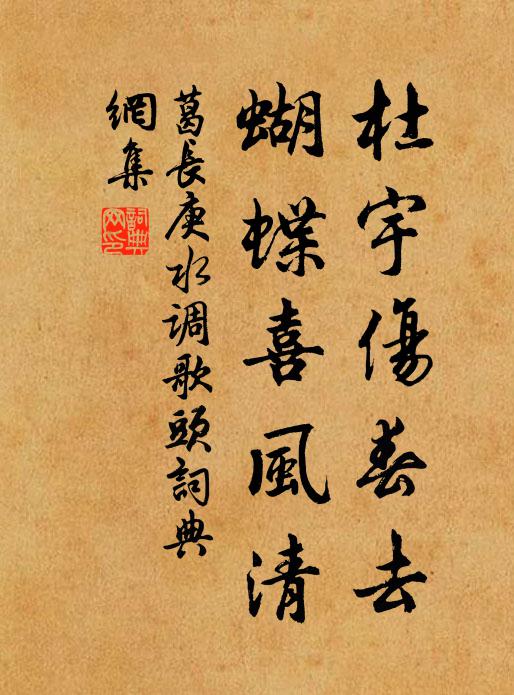 杜宇傷春去
蝴蝶喜風清
葛長庚水调歌頭詞典
網集
詞典網印